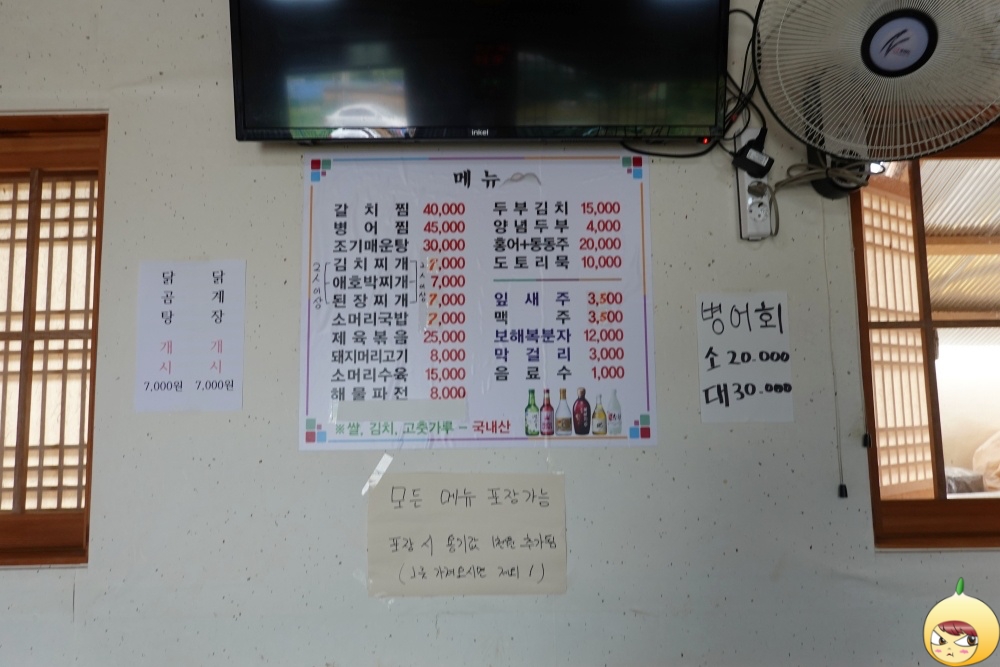 inkel
메뉴
갈치찜 40,000
병어찜 45,000
조기매운탕 30,000
김치찌개 7,000
애호박찌개 7,000
된장찌개 7,000
2人 이상
2人 이상
소머리국밥 7,000
제육볶음 25,000
돼지머리고기 8,000
소머리수육 15,000
해물파전 8,000
두부김치 15,000
양념두부 4,000
홍어+동동주 20,000
도토리묵 10,000
잎새주 3,500
맥주 3,500
보해복분자 12,000
막걸리 3,000
음료수 1,000
※쌀, 김치, 고춧가루 - 국내산
닭곰탕
개시
7,000원
닭계장
개시
7,000원
병어회
소 20.000
대 30.000
모든 메뉴 포장가능
포장 시 용기값 1천원 추가됨
( 가져오시면 제외 ! )